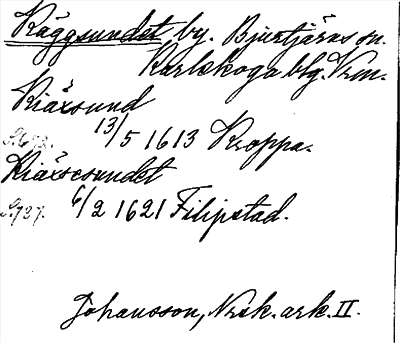 Räggsundet by. Bjurtjärns sn.
Karlskoga blg. Vrm.
Kiäxsund
S. 693. 13/5 1613 Kroppa.
Kiäxsesundet
S. 737. 6/2 1621 Filipstad.
Johansson, Nrsk. ark. II.